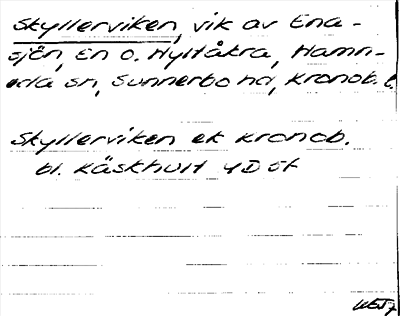 Skyllerviken, vik av Ena-
sjön, En o. Hyltåkra, Hamn-
eda sn, Sunnerbo hd, Kronob. l.
Skyllerviken ek Kronob.
bl. Käskhult 4D 5f